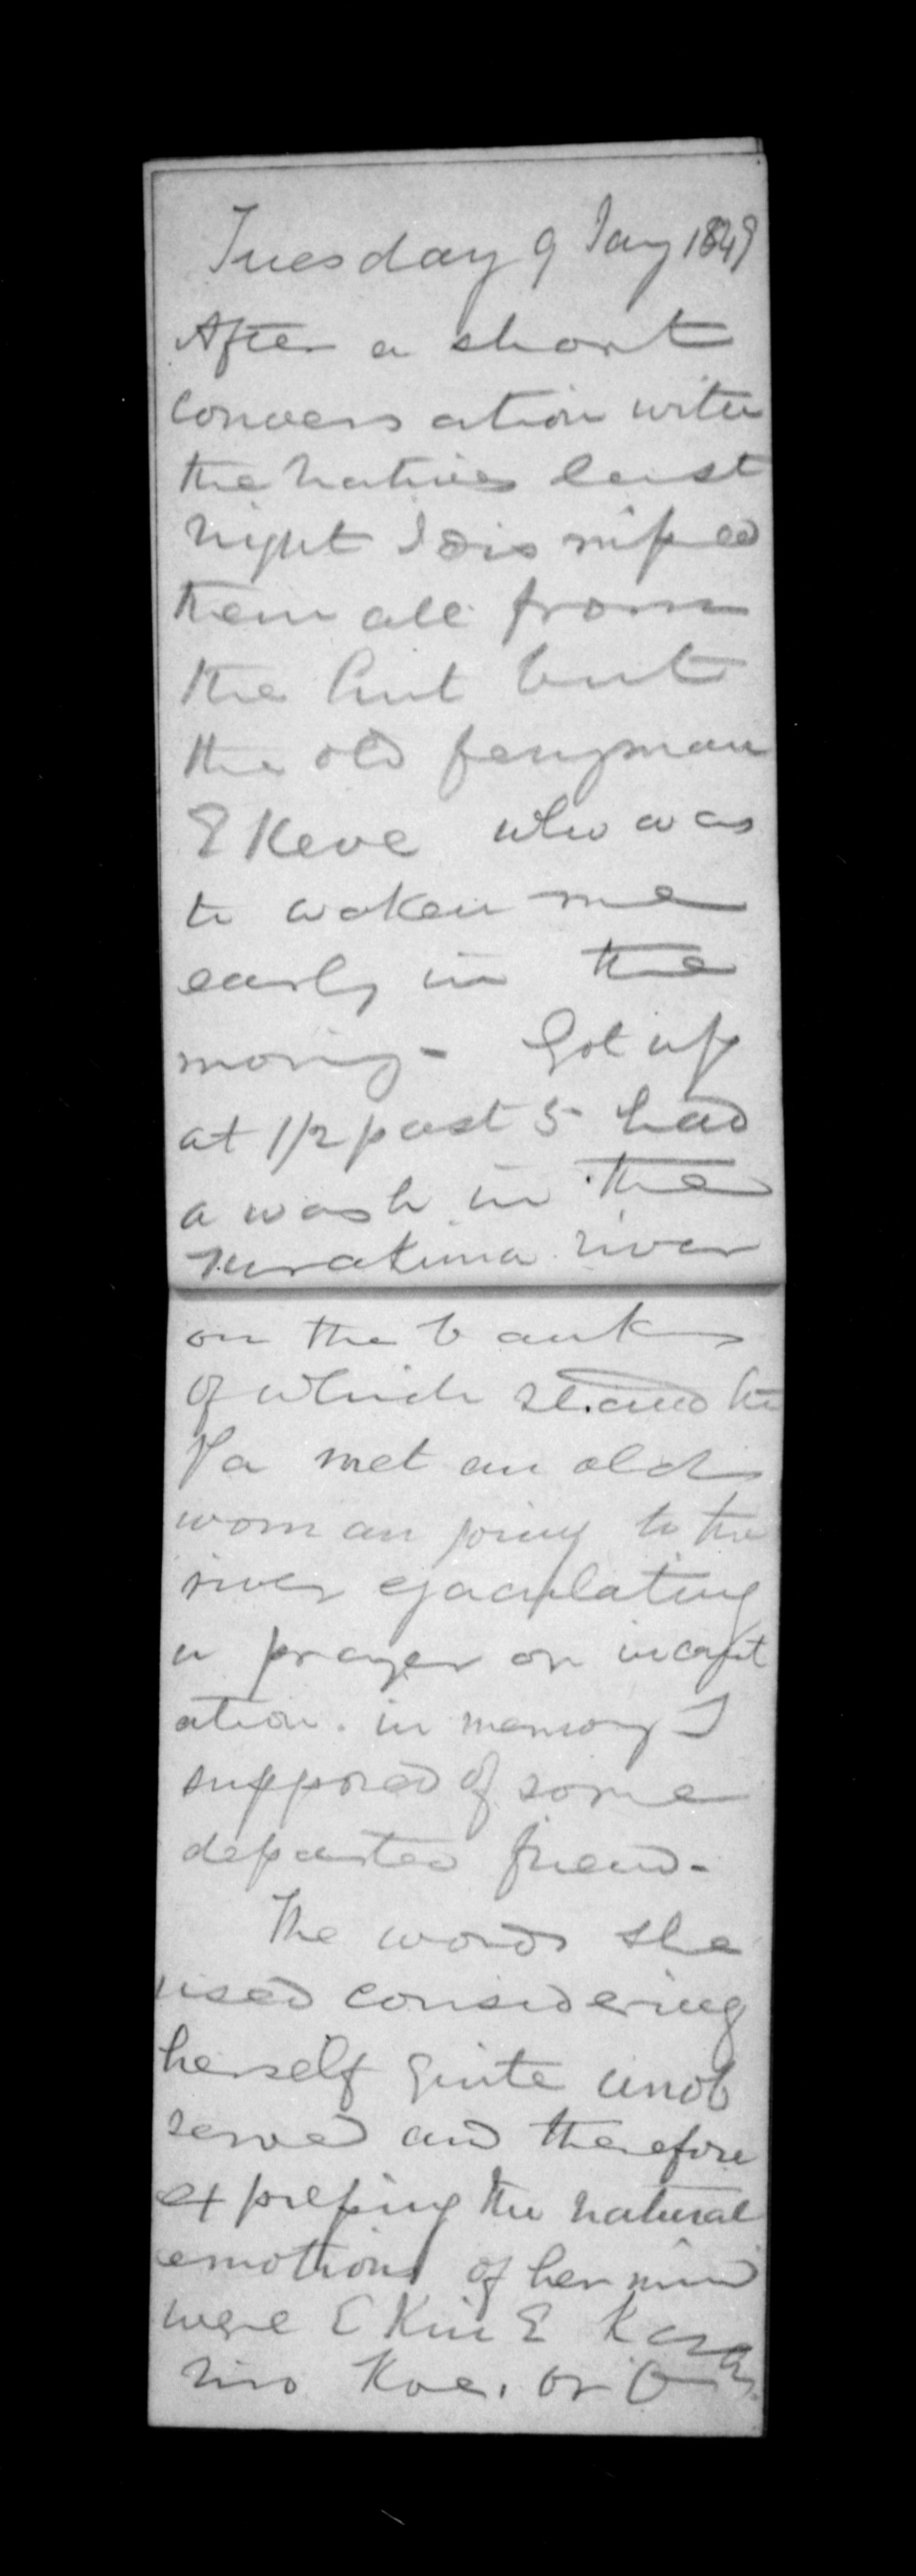 Tuesday 9 Jany 1849
After a short
convers ation with
the natives last
night I dismissed
them all from
the hut but
the old ferryman
E Keve who was
to waken me
early in the
morning - Got up
at 1/2 past 5 had
a wash in the
river
on the banks
of which stand the
Pa met an old
woman going to the
river ejaculating
a prayer or incant
ation. in memory I
supposed of some
departed friend -
The words she
used considering
herself quite unob
served and therefore
expressing the natural
emotions of her mind
were E Kui E
Koe. or